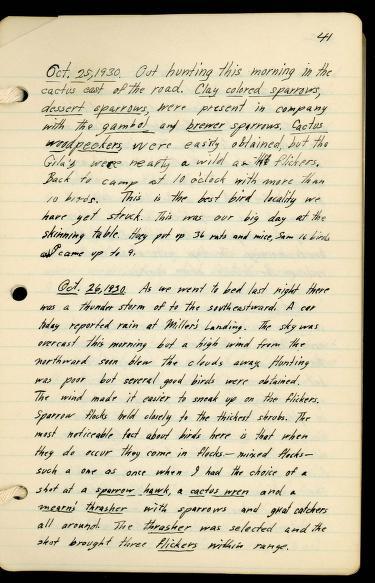 41
Oct. 25, 1930. Out hunting this morning in the
cactus east of the road. Clay colored sparrows,
dessert sparrows, were present in company
with the gambol and brewer sparrows. Cactus
woodpeckers, were easily obtained, but the
Gila's were nearly a wild as the flickers.
Back to camp at 10 o'clock with more than
10 birds. This is the best bird locality we
have yet struck. This was our big day at the
skinning table. They put up 36 rats and mice, Sam 16 birds
I came up to 9.
Oct. 26, 1930 As we went to bed last night there
was a thunder storm of to the southeastward. A car
today reported rain at Miller's Landing. The sky was
overcast this morning but a high wind from the
northward soon blew the clouds away. Hunting
was poor but several good birds were obtained.
The wind made it easier to sneak up on the flickers.
Sparrow flocks held closely to the thickest shrubs. The
most noticeable fact about birds here is that when
they do occur they come in flocks - mixed flocks -
such a one as once when I had the choice of a
shot at a sparrow hawk, a cactus wren and a
mearns thrasher with sparrows and gnat catchers
all around. The thrasher was selected and the
shot brought three flickers within range.